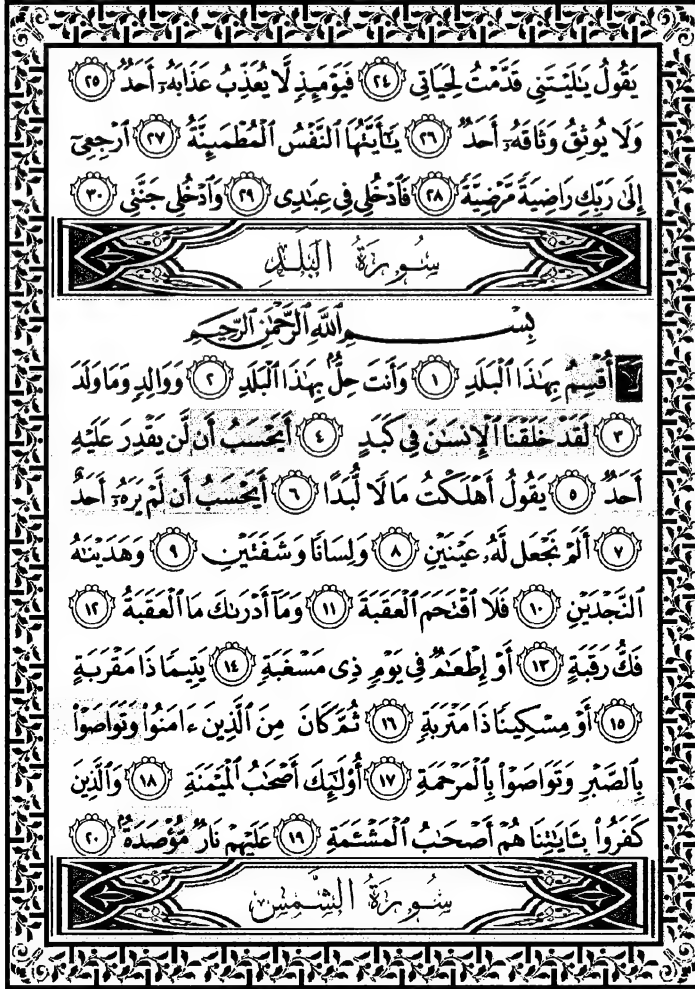 يَقُولُ يَٰلَيْتَنِى قَدَّمْتُ لِحَيَاتِى ٢٤ فَيَوْمَئِذٍ لَّا يُعَذِّبُ عَذَابَهُۥٓ أَحَدٌ ٢٥
وَلَا يُوثِقُ وَثَاقَهُۥٓ أَحَدٌ ٢٦ يَٰٓأَيَّتُهَا ٱلنَّفْسُ ٱلْمُطْمَئِنَّةُ ٢٧ ٱرْجِعِىٓ
إِلَىٰ رَبِّكِ رَاضِيَةً مَّرْضِيَّةً ٢٨ فَٱدْخُلِى فِى عِبَٰدِى ٢٩ وَٱدْخُلِى جَنَّتِى ٣٠
سُورَةُ الْبَلَدِ
بِسْمِ ٱللَّهِ ٱلرَّحْمَٰنِ ٱلرَّحِيمِ
أُقْسِمُ بِهَٰذَا ٱلْبَلَدِ ١ وَأَنتَ حِلٌّۢ بِهَٰذَا ٱلْبَلَدِ ٢ وَوَالِدٍ وَمَا وَلَدَ
٣ لَقَدْ خَلَقْنَا ٱلْإِنسَٰنَ فِى كَبَدٍ ٤ أَيَحْسَبُ أَن لَّن يَقْدِرَ عَلَيْهِ
أَحَدٌ ٥ يَقُولُ أَهْلَكْتُ مَالًا لُّبَدًا ٦ أَيَحْسَبُ أَن لَّمْ يَرَهُۥٓ أَحَدٌ
٧ أَلَمْ نَجْعَل لَّهُۥ عَيْنَيْنِ ٨ وَلِسَانًا وَشَفَتَيْنِ ٩ وَهَدَيْنَٰهُ
ٱلنَّجْدَيْنِ ١٠ فَلَا ٱقْتَحَمَ ٱلْعَقَبَةَ ١١ وَمَآ أَدْرَىٰكَ مَا ٱلْعَقَبَةُ ١٢
فَكُّ رَقَبَةٍ ١٣ أَوْ إِطْعَٰمٌ فِى يَوْمٍ ذِى مَسْغَبَةٍ ١٤ يَتِيمًا ذَا مَقْرَبَةٍ
١٥ أَوْ مِسْكِينًا ذَا مَتْرَبَةٍ ١٦ ثُمَّ كَانَ مِنَ ٱلَّذِينَ ءَامَنُوا۟ وَتَوَاصَوْا۟
بِٱلصَّبْرِ وَتَوَاصَوْا۟ بِٱلْمَرْحَمَةِ ١٧ أُو۟لَٰٓئِكَ أَصْحَٰبُ ٱلْمَيْمَنَةِ ١٨ وَٱلَّذِينَ
كَفَرُوا۟ بِـَٔايَٰتِنَا هُمْ أَصْحَٰبُ ٱلْمَشْـَٔمَةِ ١٩ عَلَيْهِمْ نَارٌ مُّؤْصَدَةٌۢ ٢٠
سُورَةُ الشَّمْسِ